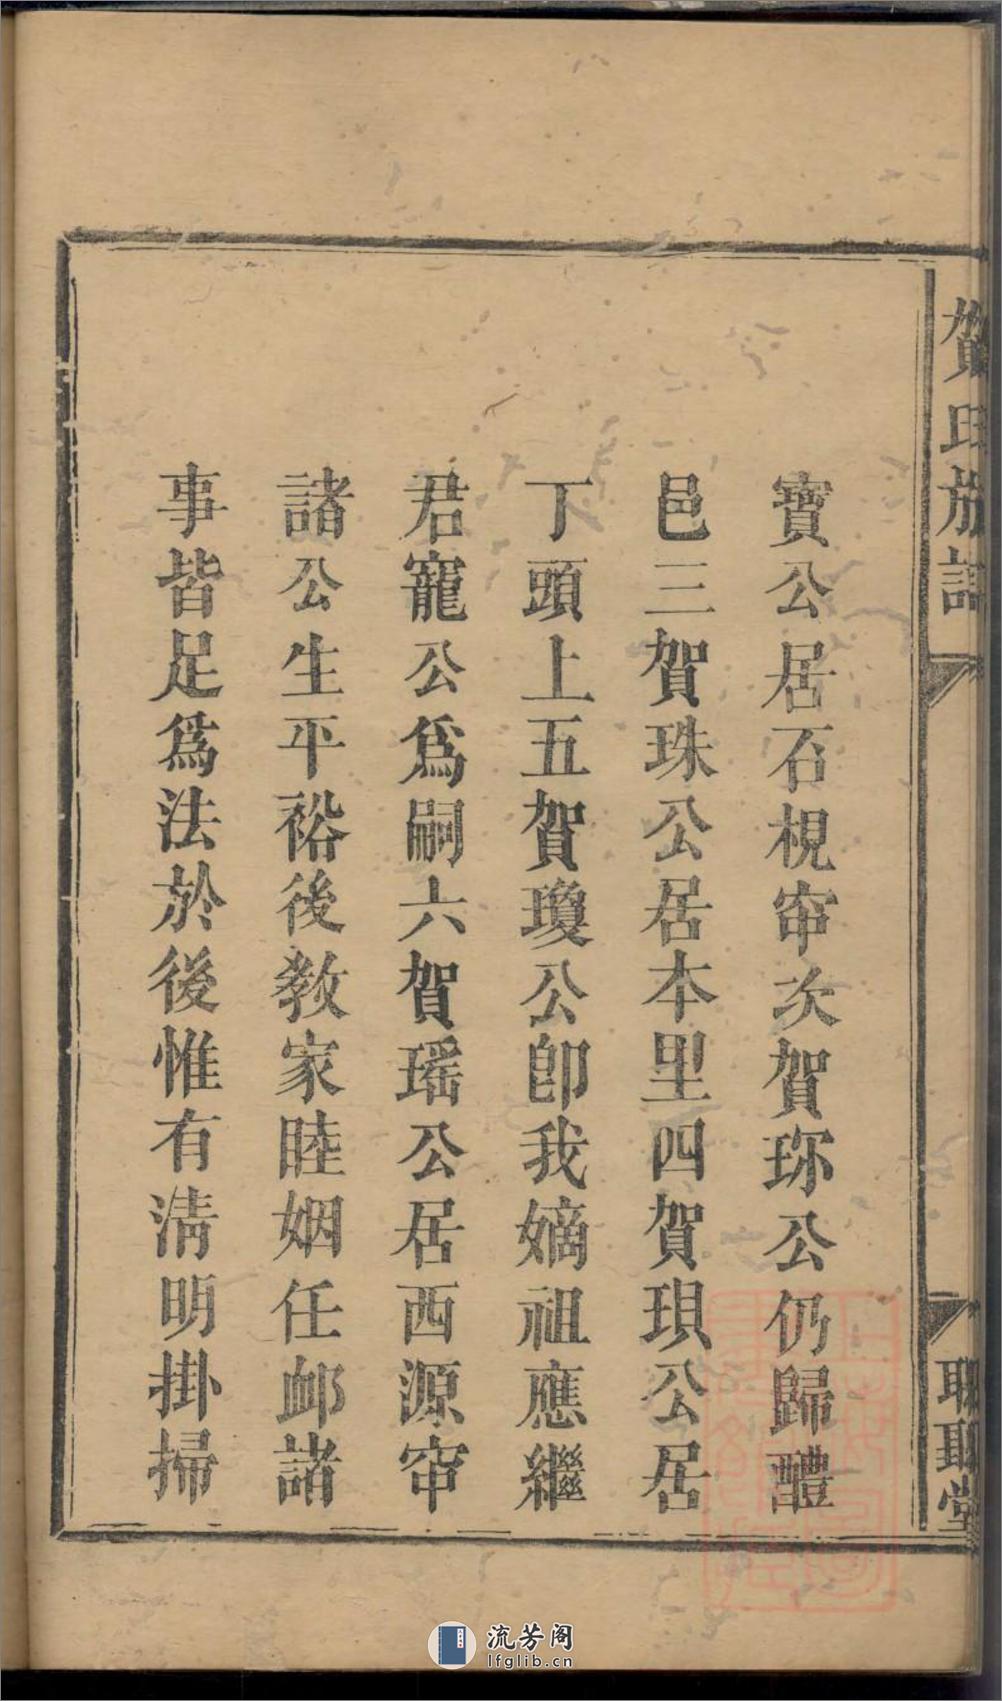 賀氏族譜
聯聚堂
寶公居石梘窂次賀珎公仍歸醴
邑三賀珠公居本里四賀珼公居
丁頭上五賀瓊公卽我嫡祖應繼
君寵公爲嗣六賀瑶公居西源窂
諸公生平裕後教家睦姻任卹諸
事皆足爲法於後惟有淸明掛掃
流芳阁
lfglib.cn